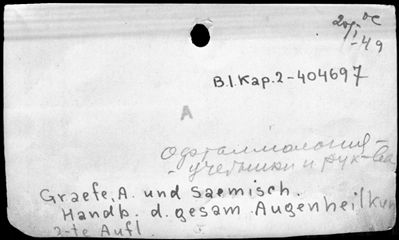 20/I
-49
B.I.Kap.2-404697
A
Офталмология -
- учебники и рук-ва
Graefe, A. und Saemisch.
Handb. d. gesam. Augenheilkun
2-te Aufl.